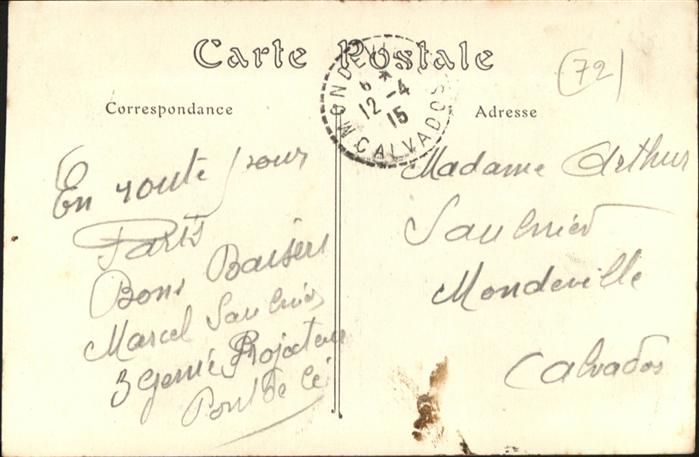 Carte Postale
(72)
MONDEVILLE
6 *
12-4
15
CALVADOS
Correspondance
Adresse
En route pour
Paris
Bons Baisers
Marcel Saulnier
3 Genie Projecteur
Pont de Cé
Madame Arthur
Saulnier
Mondeville
Calvados